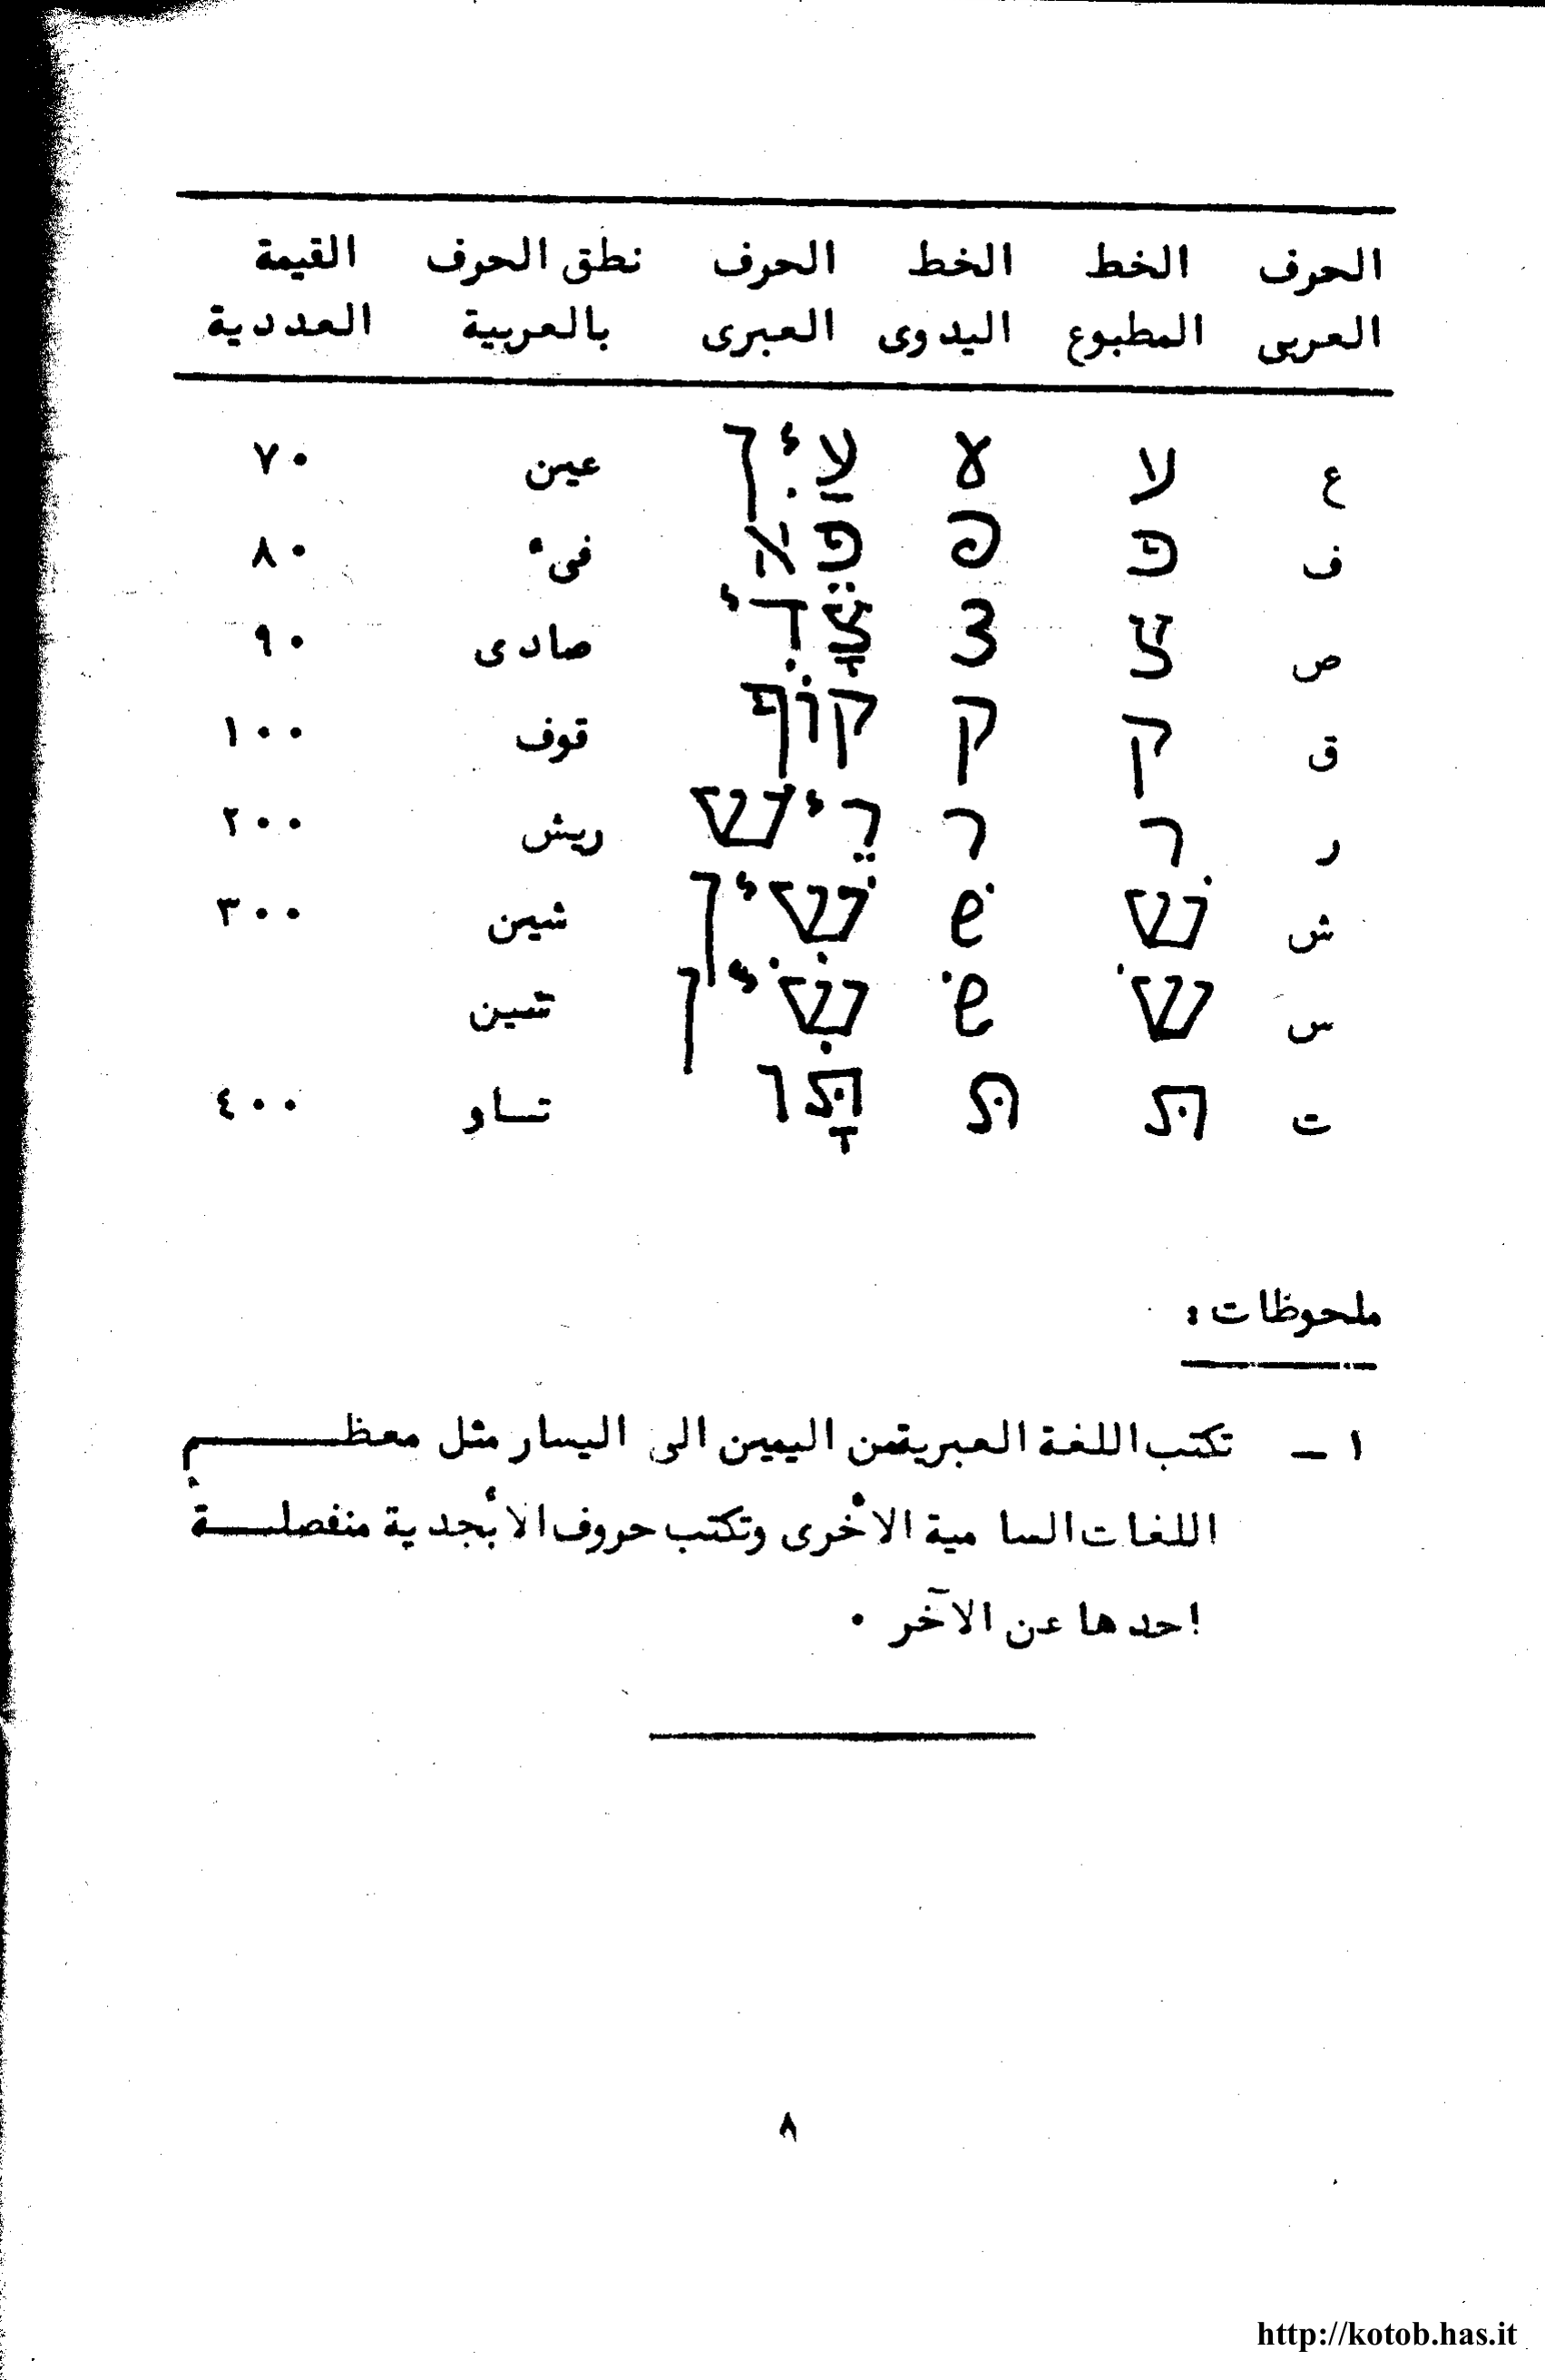 الحرف الخط الخط الحرف نطق الحرف القيمة
العربى المطبوع اليدوى العبرى بالعربية العددية
ع ע ע עַיִן عين ٧٠
ف פּ פּ פֵּא فى ء ٨٠
ص צ צ צָדִי صادى ٩٠
ق ק ק קוֹף قوف ١٠٠
ر ר ר רֵישׁ ريش ٢٠٠
ش שׁ שׁ שִׁין شين ٣٠٠
س שׂ שׂ שִׂין سين
ت תּ תּ תָּו تاو ٤٠٠
ملحوظات :
١ – تكتب اللغة العبرية من اليمين الى اليسار مثل معظم
اللغات السامية الأخرى وتكتب حروف الأبجدية منفصلة
احدها عن الآخر .
٨
http://kotob.has.it